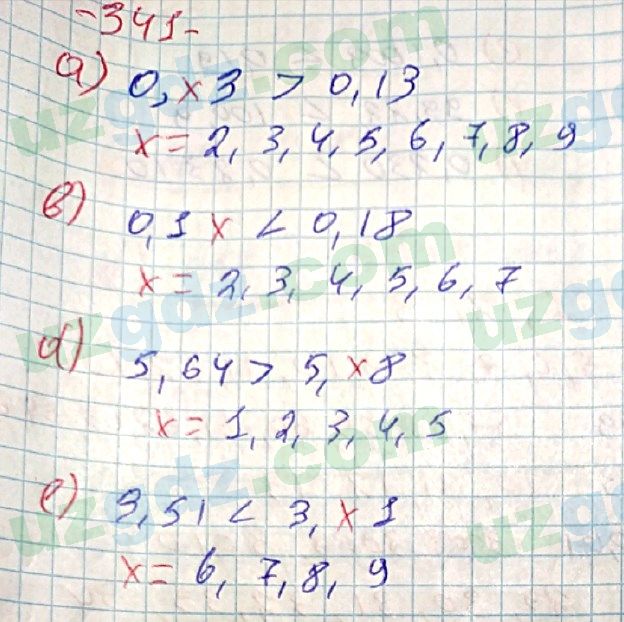 -341-
а) 0,x3 > 0,13
x = 2, 3, 4, 5, 6, 7, 8, 9
в) 0,1x < 0,18
x = 2, 3, 4, 5, 6, 7
d) 5,64 > 5,x8
x = 1, 2, 3, 4, 5
e) 3,51 < 3,x1
x = 6, 7, 8, 9
uzgdz.com
uzgdz.com
uzgdz.com